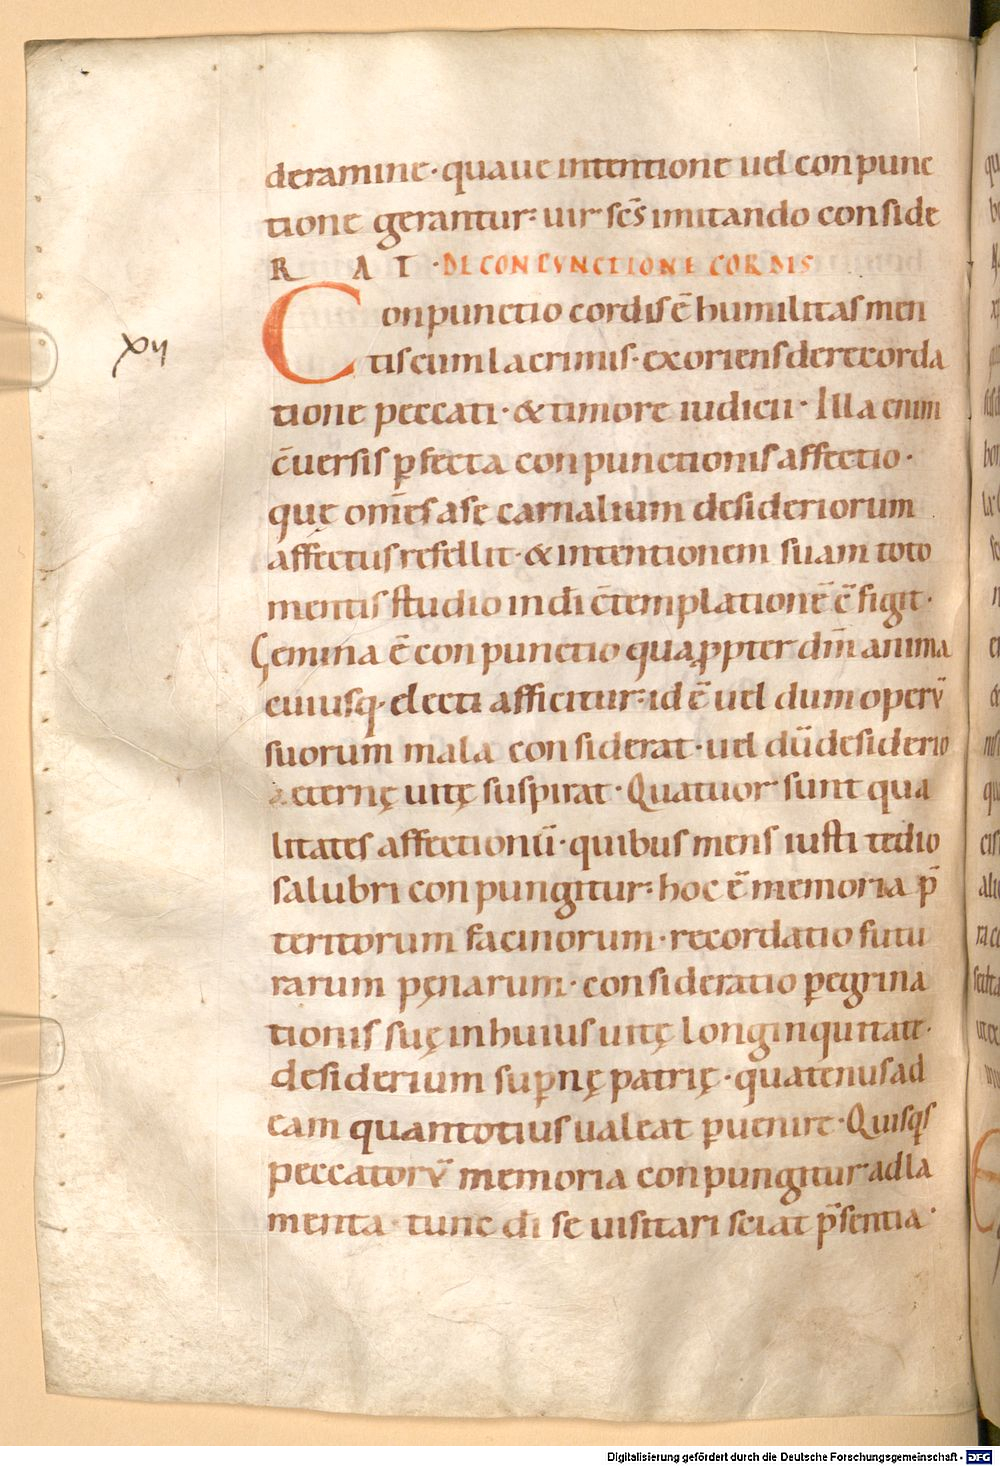 deramine · quaue intentione uel conpunc
tione gerantur: uir sc̄s imitando conside
RAT · DE CONPUNCTIONE CORDIS
Conpunctio cordis ē humilitas men
xii
tis cum lacrimis · exoriens de recorda
tione peccati · & timore iudicii · Illa enim
c̄uersis ꝑfecta conpunctionis affectio ·
quę om̄es a se carnalium desideriorum
affectus refellit · & intentionem suam toto
mentis studio in dī c̄templationē ē figit ·
Gemina ē conpunctio qua ꝓpter dm̄ anima
cuiusq· electi afficitur: id ē uel dum operū
suorum mala considerat · uel dū desiderio
aeternę uitę suspirat · Quatuor sunt qua
litates affectionū · quibus mens iusti tedio
salubri conpungitur: hoc ē memoria p̄
teritorum facinorum · recordatio futu
rarum pęnarum · consideratio peregrina
tionis suę in huius uitę longinquitate ·
desiderium suꝑnę patrię · quatenus ad
eam quantotius ualeat ꝑuenire · Quisqs
peccatorū memoria conpungitur ad la
menta · tunc dī se uisitari sciat p̄sentia ·
Digitalisierung gefördert durch die Deutsche Forschungsgemeinschaft - DFG